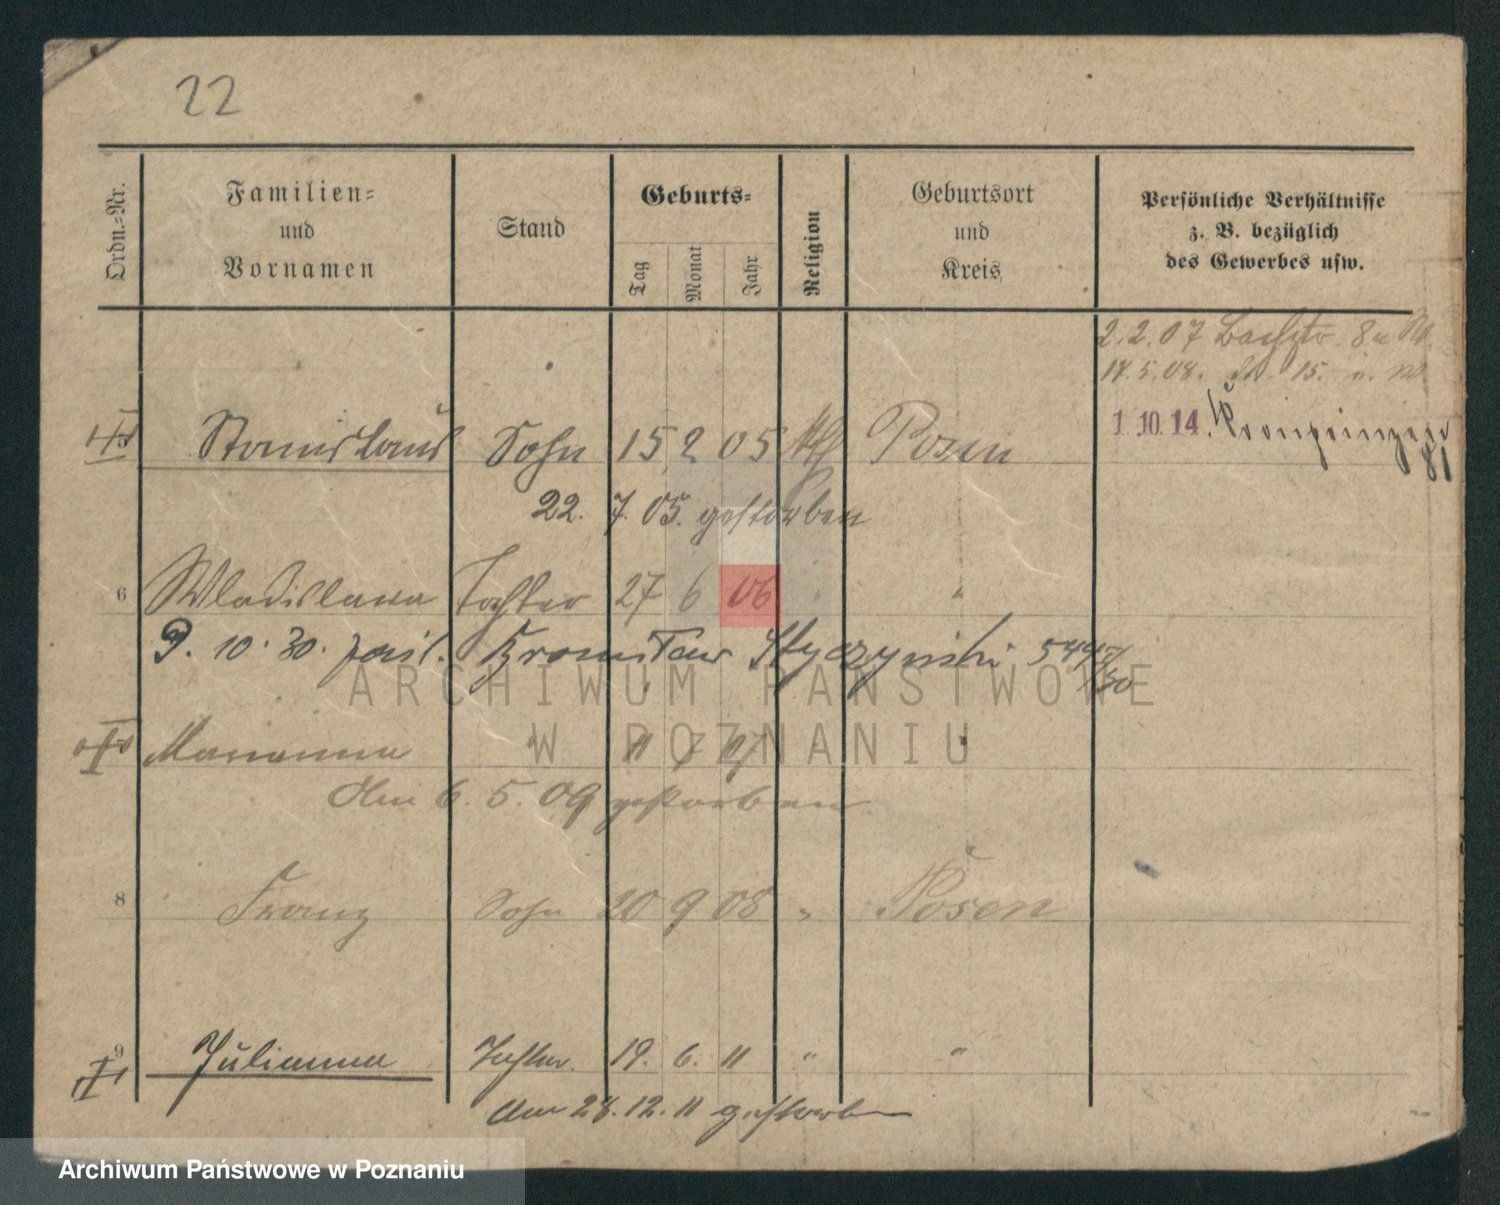 22
Ordn.=Nr.
Familien=
und
Vornamen
Stand
Geburts=
Tag
Monat
Jahr
Religion
Geburtsort
und
Kreis
Persönliche Verhältnisse
z. B. bezüglich
des Gewerbes usw.
2.2.07 Bachstr. 8
17.5.08. 15.
1.10.14. Kronprinzen
81
Stanislaus Sohn 15 2 05 kth Posen
22. 7. 05. gestorben
6 Wladislawa Tochter 27 6 06 " "
9. 10. 30. Bronisław Styczyński 5447/30
Marianna " 11 7 07 "
Am 6. 5. 09 gestorben
8 Franz Sohn 20 9 08 " Posen
9 Julianna Tochter. 19. 6. 11 " "
Am 28. 12. 11 gestorben
ARCHIWUM PAŃSTWOWE
W POZNANIU
Archiwum Państwowe w Poznaniu